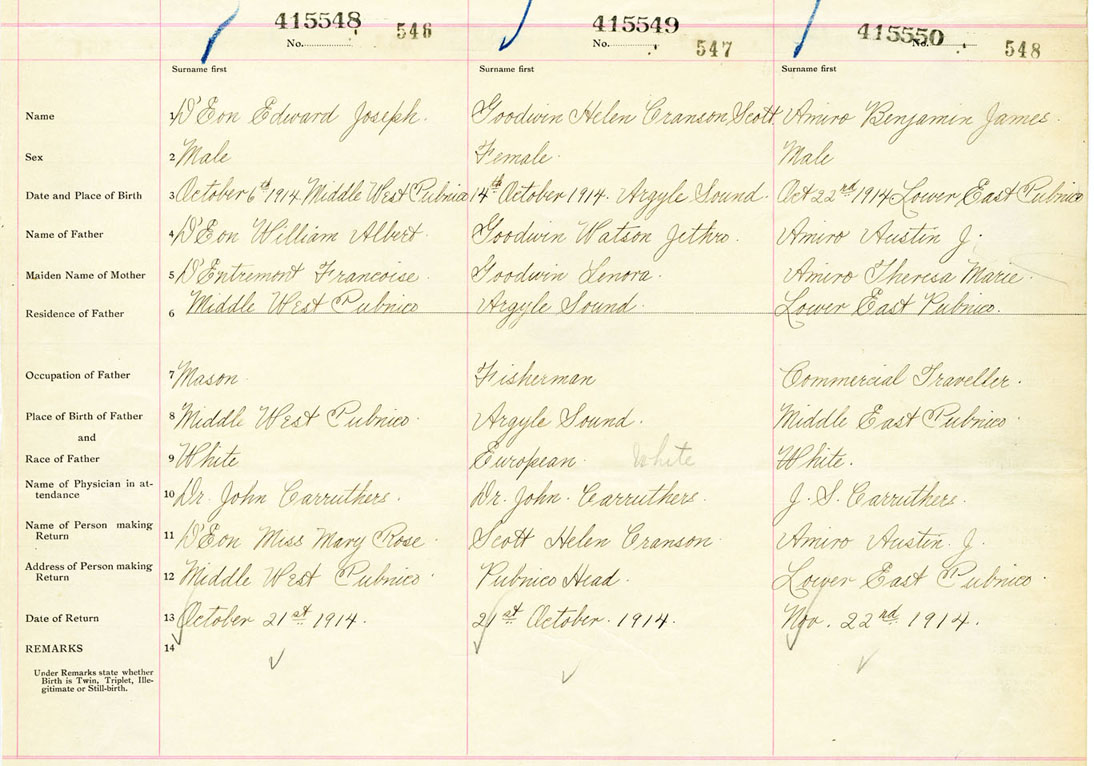 415548 415549 415550
No. 546 No. 547 No. 548
Surname first Surname first Surname first
Name 1 D'Eon Edward Joseph. Goodwin Helen Cranson Scott. Amiro Benjamin James.
Sex 2 Male Female. Male
Date and Place of Birth 3 October 6th 1914. Middle West Pubnico 14th October 1914. Argyle Sound. Oct 22nd 1914 Lower East Pubnico
Name of Father 4 D'Eon William Albert. Goodwin Watson Jethro. Amiro Austin J.
Maiden Name of Mother 5 D'Entremont Francoise. Goodwin Lenora. Amiro Theresa Marie.
Residence of Father 6 Middle West Pubnico Argyle Sound. Lower East Pubnico.
Occupation of Father 7 Mason. Fisherman Commercial Traveller.
Place of Birth of Father 8 Middle West Pubnico. Argyle Sound. Middle East Pubnico.
and
Race of Father 9 White European. White White.
Name of Physician in at-
tendance 10 Dr. John Carruthers. Dr. John. Carruthers. J. S. Carruthers.
Name of Person making
Return 11 D'Eon Miss Mary Rose. Scott Helen Cranson. Amiro Austin. J.
Address of Person making
Return 12 Middle West Pubnico. Pubnico Head. Lower East Pubnico.
Date of Return 13 October 21st 1914. 21st October. 1914. Nov. 22nd 1914.
REMARKS 14
Under Remarks state whether
Birth is Twin, Triplet, Ille-
gitimate or Still-birth.